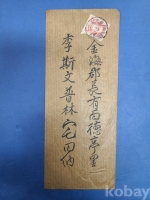 金海郡長有面德亭里
李斯文普林宅回納
kobay